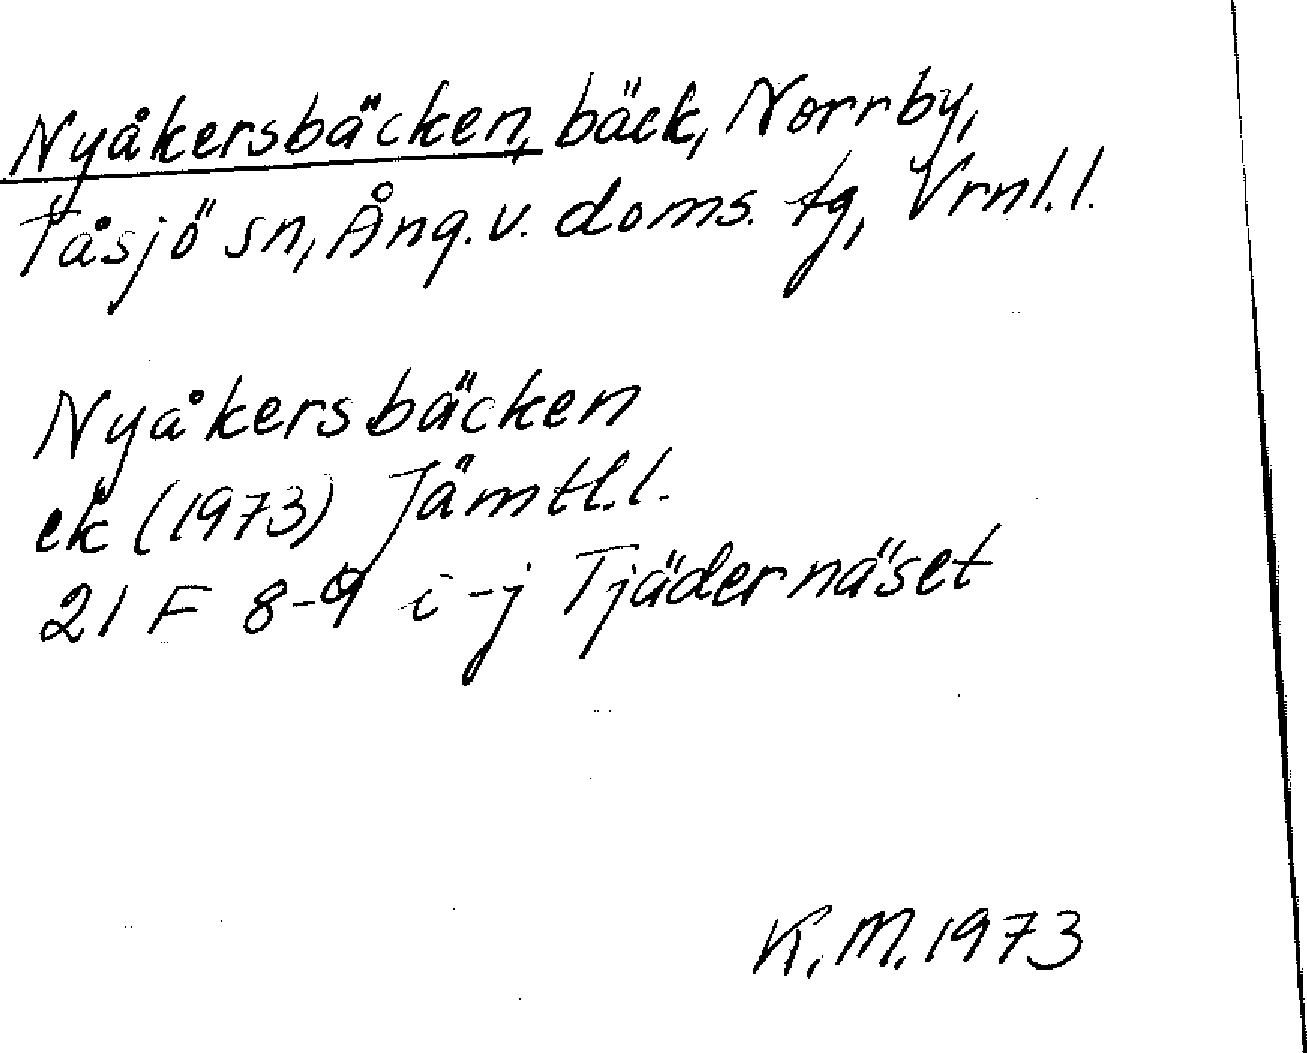 Nyåkersbäcken, bäck, Norrby,
Tåsjö sn, Ång. v. doms. tg, Vrnl. l.
Nyåkersbäcken
ek (1973) Jämtl. l.
21 F 8-9 i-j Tjädernäset
K. M. 1973